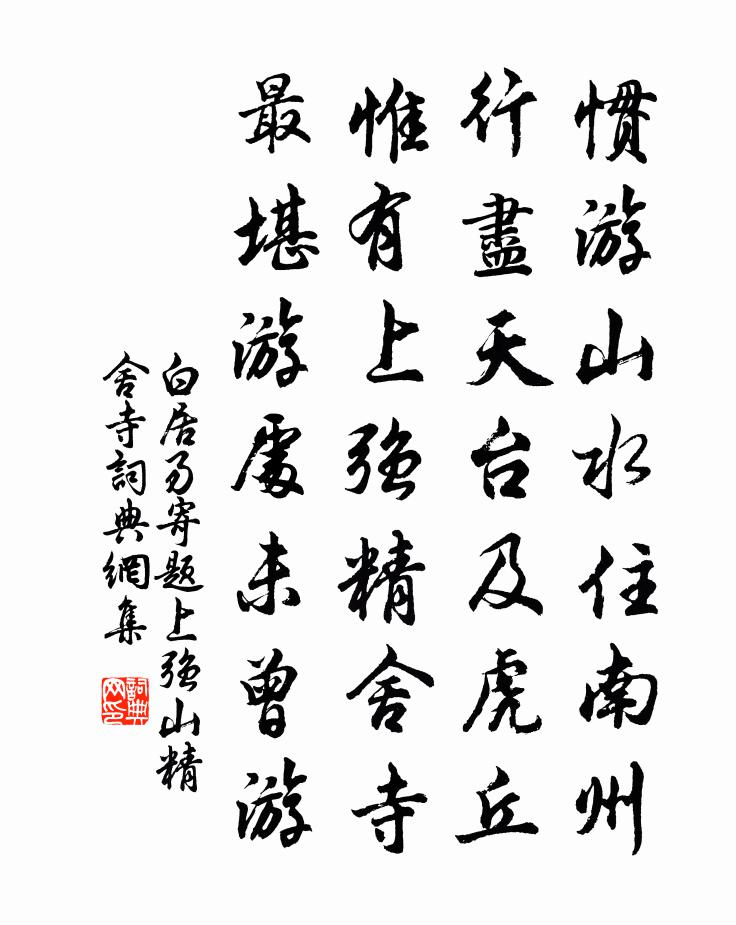 慣游山水住南州
行盡天台及虎丘
惟有上強精舍寺
最堪游處未曾游
白居易寄題上強山精
舍寺詞典網集
詞典
网印